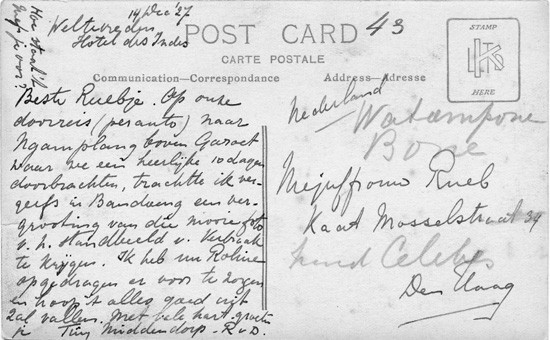 Hoe staat 't
hier voor?
Weltevreden 14 Dec '27
Hotel des Indes
POST CARD
43
CARTE POSTALE
Communication—Correspondance
Address—Adresse
STAMP
HERE
Beste Ruebje. Op onze
doorreis (per auto) naar
Ngamplang boven Garoet
waar we een heerlijke 10 dagen
doorbrachten, trachtte ik ver-
geefs in Bandoeng een ver-
grooting van die mooie foto
v. h. Standbeeld v. Verbraak
te krijgen. Ik heb nu Roline
opgedragen er voor te zorgen
en hoop 't alles goed uit
zal vallen. Met vele hart. groeten
je Tiny Middendorp - R.v.D.
Nederland
Watampone
Bone
Mejuffrouw Rueb
Kaat Mosselstraat 34
Celebes
Den Haag